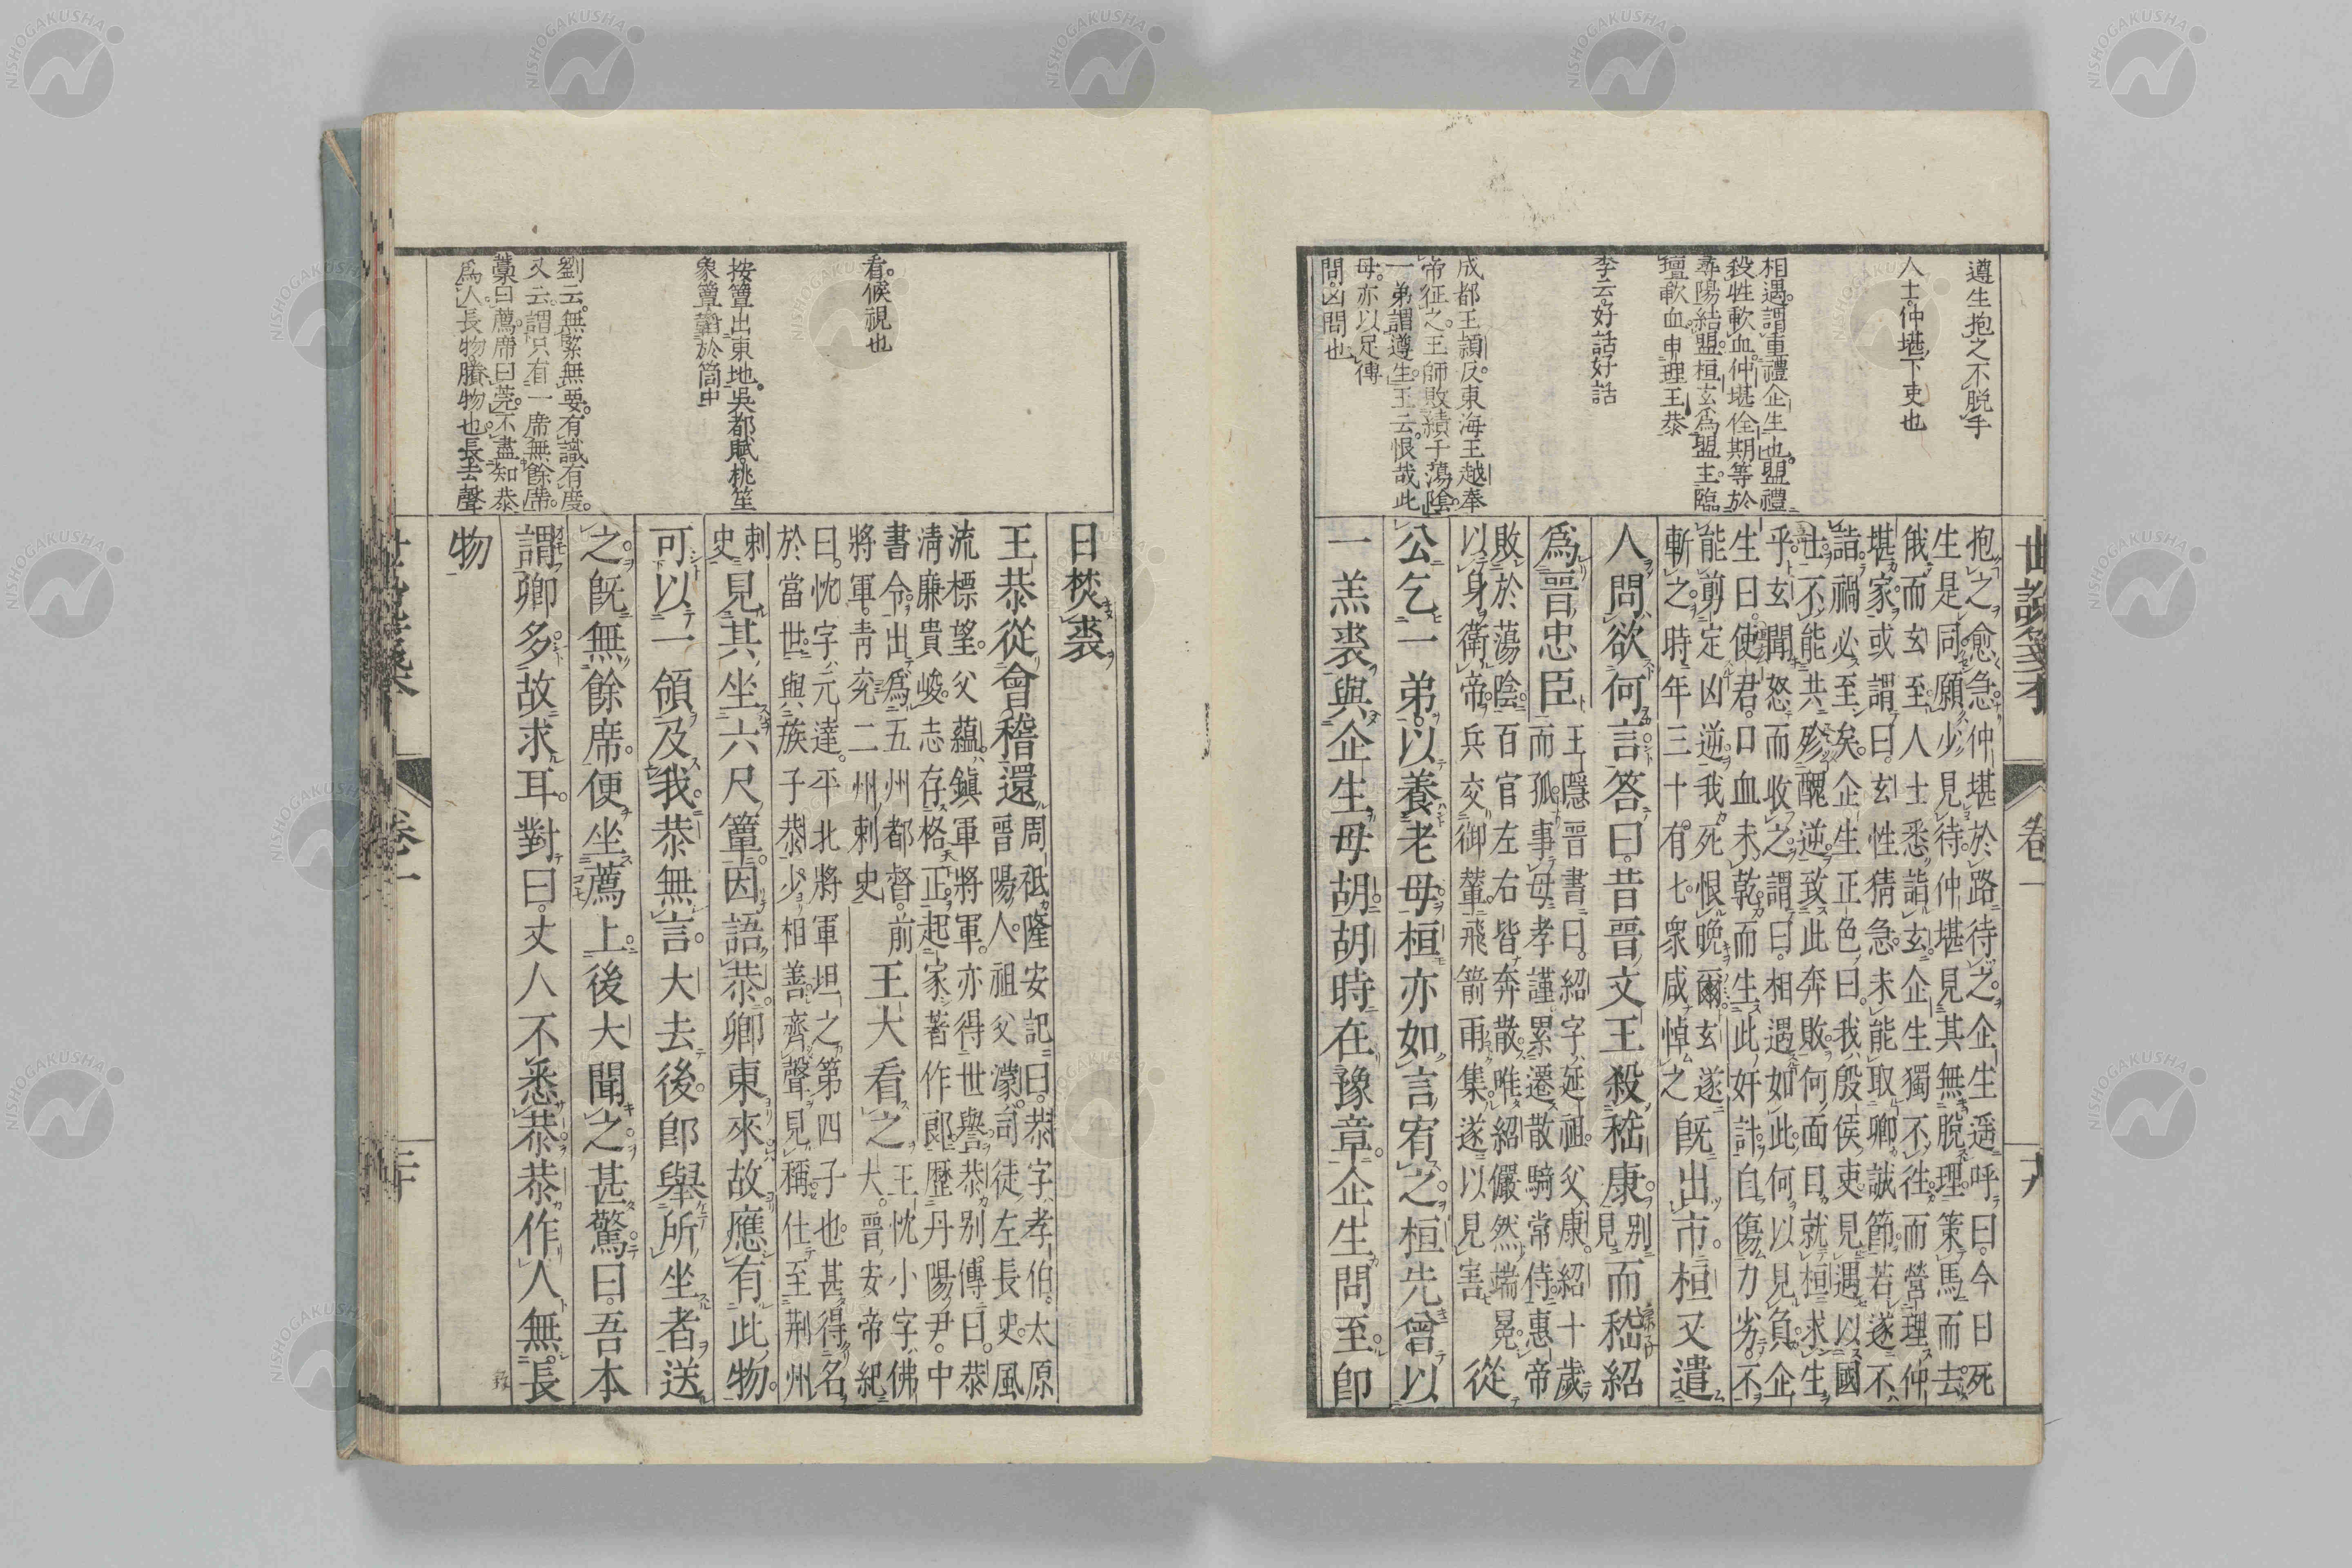 世說箋本 卷一 十九
遵生抱之不脱手
人士仲堪下吏也
相遇謂重禮企生也盟禮
殺牲歃血仲堪佺期等於
尋陽結盟桓玄為盟主臨
壇歃血申理王恭
李云好話好話
成都王穎反東海王越奉
帝征之王師敗績于蕩陰
一弟謂遵生王云恨哉此
母亦以足傳
問凶問也
抱之愈急仲堪於路待之企生遥呼曰今日死
生是同願少見待仲堪見其無脱理策馬而去
俄而玄至人士悉詣玄企生獨不往而營理仲
堪家或謂曰玄性猜急未能取卿誠節若遂不
詣禍必至矣企生正色曰我殷侯吏見遇以國
士不能共殄醜逆致此奔敗何面目就桓求生
乎玄聞怒而收之謂曰相遇如此何以見負企
生曰使君口血未乾而生此奸計自傷力劣不
能剪定凶逆我死恨晚爾玄遂
斬之時年三十有七衆咸悼之
既出市桓又遣
人問欲何言答曰昔晉文王殺嵇康別見而嵇紹
爲晉忠臣
王隱晉書曰紹字延祖父康紹十歲
而孤事母孝謹累遷散騎常侍惠帝
敗於蕩陰百官左右皆奔散唯紹儼然端冕
以身衛帝兵交御輦飛箭雨集遂以見害
從
公乞一弟以養老母桓亦如言宥之桓先曾以
一羔裘與企生母胡胡時在豫章企生問至即
看候視也
按簟出東地吳都賦桃笙
象簟韜於筒中
劉云無緊無要有識有度
又云謂只有一席無餘席
藁曰薦席曰莞不盡知恭
爲人長物賸物也長去聲
日焚裘
王恭從會稽還
周祗隆安記曰恭字孝伯太原
晉陽人祖父濛司徒左長史風
流標望父蘊鎮軍將軍亦得世譽恭別傳曰恭
清廉貴峻志存格正起家著作郎歷丹陽尹中
書令出為五州都督前
將軍青兗二州刺史
王大看之
王忱小字佛
大晉安帝紀
曰忱字元達平北將軍坦之第四子也甚得名
於當世與族子恭少相善齊聲見稱仕至荆州
刺史
見其坐六尺簟因語恭卿東來故應有此物
可以一領及我恭無言大去後即舉所坐者送
之既無餘席便坐薦上後大聞之甚驚曰吾本
謂卿多故求耳對曰丈人不悉恭恭作人無長
物
卷一 二十
NISHOGAKUSHA